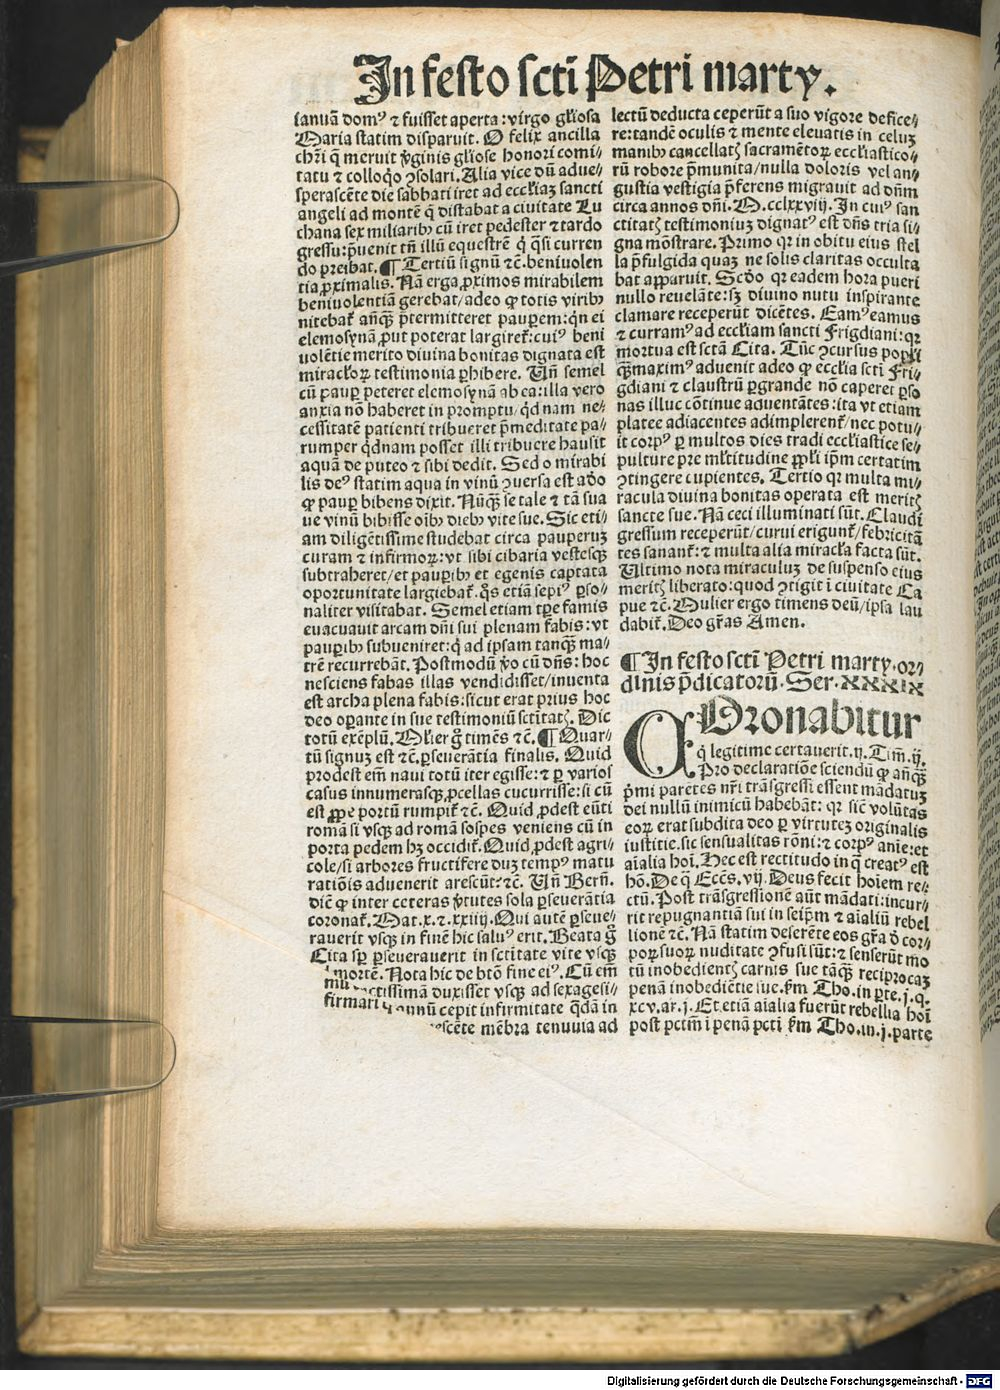 In festo scti Petri marty.
ianuā domꝰ ⁊ fuisset aperta: virgo gl̄iosa
Maria statim disparuit. O felix ancilla
chr̄i q̄ meruit v̄ginis gl̄iose honori comi⸗
tatu ⁊ colloq̊o ꝯsolari. Alia vice dū adue⸗
sperascēte die sabbati iret ad eccl̄iaꝫ sancti
angeli ad montē q̄ distabat a ciuitate Lu
chana sex miliaribꝰ cū iret pedester ⁊ tardo
gressu: p̄uenit tn̄ illū equestrē q̇ q̄si curren
do preibat. ¶ Tertiū signū ⁊c̄. beniuolen
tia ꝓximalis. Nā erga ꝓximos mirabilem
beniuolentiā gerebat/adeo ꝙ totis viribꝰ
nitebat᷑ anq̄ꝫ p̄termitteret pauꝑem: qn̄ ei
elemosynā ꝓut poterat largiret᷑: cuiꝰ beni
uolētie merito diuina bonitas dignata est
miracl̓oꝝ testimonia ꝑhibere. Un̄ semel
cū pauꝑ peteret elemosynā ab ea: illa vero
anxia nō haberet in promptu/qd nam ne⸗
cessitatē patienti tribueret p̄meditate pa⸗
rumper q̇dnam posset illi tribuere hausit
aquā de puteo ⁊ sibi dedit. Sed o mirabi
lis deꝰ statim aqua in vinū ꝯuersa est adeo
ꝙ pauꝑ bibens dixit. Nūq̄ꝫ se tale ⁊ tā sua
ue vinū bibisse oībꝰ diebꝰ vite sue. Sic eti⸗
am diligētissime studebat circa pauperuꝫ
curam ⁊ infirmoꝝ: vt sibi cibaria vestesqꝫ
subtraheret/et pauꝑibꝰ et egenis captata
oportunitate largiebat᷑. q̊s etiā sepiꝰ ꝑso⸗
naliter visitabat. Semel etiam tꝑe famis
euacuauit arcam dn̄i sui plenam fabis: vt
pauꝑibꝰ subueniret: q̇ ad ipsam tanq̄ꝫ ma⸗
trē recurrebāt. Postmodū v̄o cū dn̄s: hoc
nesciens fabas illas vendidisset/inuenta
est archa plena fabis: sicut erat prius hoc
deo oꝑante in sue testimoniū sctītatꝭ. Dic
totū exēplū. Ml̓ier g̊ timēs ⁊c̄. ¶ Quar⸗
tū signuꝫ est ⁊c̄. ꝑseuerātia finalis. Quid
prodest em̄ naui totū iter egisse: ⁊ ꝑ varios
casus innumerasqꝫ ꝓcellas cucurrisse: si cū
est ꝓpe portū rumpit᷑ ⁊c̄. Quid ꝓdest eūti
romā si vsqꝫ ad romā sospes veniens cū in
porta pedem hꝫ occidit᷑. Quid ꝓdest agri⸗
cole/si arbores fructifere duꝫ tempꝰ matu
ratiōis aduenerit arescūt: ⁊c̄. Un̄ Bern̄.
dic̄ ꝙ inter ceteras v̄tutes sola ꝑseuerātia
coronat᷑. Mat. x. ⁊. xxiiij. Qui autē ꝑseue⸗
rauerit vsqꝫ in finē hic saluꝰ erit. Beata g̊
Cita sꝑ ꝑseuerauerit in sctītate vite vsqꝫ
mortē. Nota hic de bt̄o fine eiꝰ. Cū em̄
ctissimā duxisset vsqꝫ ad sexagesi⸗
firmari annū cepit infirmitate q̄dā in
escēte mēbra tenuuia ad
lectū deducta ceperūt a suo vigore defice⸗
re: tandē oculis ⁊ mente eleuatis in celuꝫ
manibꝰ cancellatꝭ sacramētoꝝ eccl̄iastico⸗
rū robore p̄munita/nulla doloris vel an⸗
gustia vestigia p̄ferens migrauit ad dn̄m
circa annos dn̄i. M.cclxxviij. In cuiꝰ san
ctitatꝭ testimoniuꝫ dignatꝰ est dn̄s tria si⸗
gna mōstrare. Primo qꝛ in obitu eius stel
la p̄fulgida quaꝫ ne solis claritas occulta
bat apparuit. Scd̄o qꝛ eadem hora pueri
nullo reuelāte: sꝫ diuino nutu inspirante
clamare receperūt dicētes. Eamꝰ eamus
⁊ curramꝰ ad eccl̄iam sancti Frigdiani: qꝛ
mortua est sctā Cita. Tūc ꝯcursus popl̓i
q̄ꝫmaximꝰ aduenit adeo ꝙ eccl̄ia sctī Fri⸗
gdiani ⁊ claustrū ꝑgrande nō caperet ꝑso
nas illuc cōtinue aduentātes: ita vt etiam
platee adiacentes adimplerent᷑/nec potu⸗
it corpꝰ ꝑ multos dies tradi eccl̄iastice se⸗
pulture pre ml̓titudine ꝓpl̓i ip̄m certatim
ꝯtingere cupientes. Tertio qꝛ multa mi⸗
racula diuina bonitas operata est meritꝭ
sancte sue. Nā ceci illuminati sūt. Claudi
gressum receperūt/curui erigunt᷑/febricitā
tes sanant᷑: ⁊ multa alia miracl̓a facta sūt.
Ultimo nota miraculuꝫ de suspenso eius
meritꝭ liberato: quod ꝯtigit ī ciuitate Ca
pue ⁊c̄. Mulier ergo timens deū/ipsa lau
dabit᷑. Deo gr̄as Amen.
¶ In festo sctī Petri marty. or⸗
dinis p̄dicatorū. Ser. XXXIX
COronabitur
q̇ legitime certauerit. ij. Tim̄. ij.
Pro declaratiōe sciendū ꝙ anq̄ꝫ
p̄mi parētes nr̄i trāsgressi essent mādatuꝫ
dei nullū inimicū habebāt: qꝛ sic̄ volūtas
eoꝝ erat subdita deo ꝑ virtuteꝫ originalis
iustitie. sic sensualitas rōni: ⁊ corpꝰ anīe: et
aīalia hoī. Hec est rectitudo in q̄ creatꝰ est
hō. De q̄ Eccs̄. vij. Deus fecit hoīem re⸗
ctū. Post trāsgressionē aūt mādati: incur⸗
rit repugnantiā sui in seip̄m ⁊ aīaliū rebel
lionē ⁊c̄. Nā statim deserēte eos gr̄a d̓ cor⸗
poꝝ suoꝝ nuditate ꝯfusi sūt: ⁊ senserūt mo
tū inobedientꝭ carnis sue tāq̄ꝫ reciprocaꝫ
penā inobediētie sue. ẜm Tho. in ꝑte. j. q.
xcv. ar. j. Et etiā aīalia fuerūt rebellia hoī
post pctm̄ ī penā pctī ẜm Tho. in. j. parte
Digitalisierung gefördert durch die Deutsche Forschungsgemeinschaft - DFG